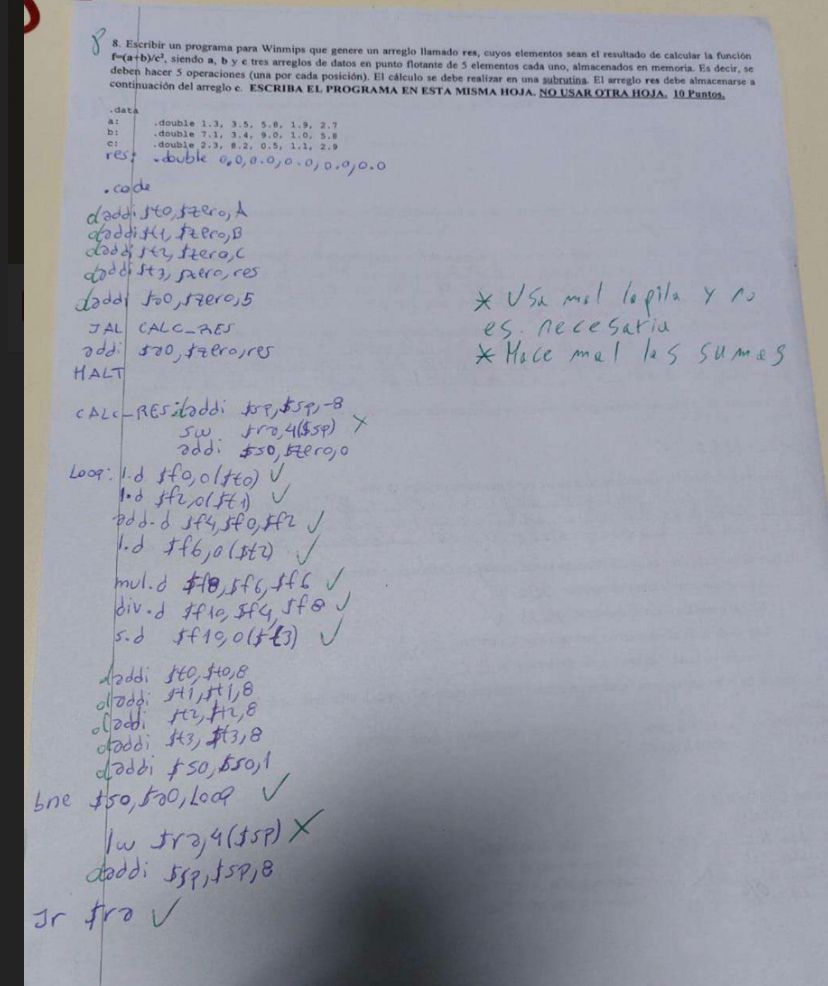 8
8. Escribir un programa para Winmips que genere un arreglo llamado res, cuyos elementos sean el resultado de calcular la función
f=(a+b)/c², siendo a, b y c tres arreglos de datos en punto flotante de 5 elementos cada uno, almacenados en memoria. Es decir, se
deben hacer 5 operaciones (una por cada posición). El cálculo se debe realizar en una subrutina. El arreglo res debe almacenarse a
continuación del arreglo c. ESCRIBA EL PROGRAMA EN ESTA MISMA HOJA. NO USAR OTRA HOJA. 10 Puntos.
.data
a: .double 1.3, 3.5, 5.8, 1.9, 2.7
b: .double 7.1, 3.4, 9.0, 1.0, 5.8
c: .double 2.3, 8.2, 0.5, 1.1, 2.9
res: .double 0.0, 0.0, 0.0, 0.0, 0.0
.code
daddi $t0, $zero, A
daddi $t1, $zero, B
daddi $t2, $zero, C
daddi $t3, $zero, res
daddi $a0, $zero, 5
JAL CALC_RES
addi $a0, $zero, res
HALT
* Usa mal la pila y no
es necesaria
* Hace mal las sumas
CALC_RES: daddi $sp, $sp, -8
sw $ra, 4($sp) X
addi $s0, $zero, 0
Loop: l.d $f0, 0($t0) ✓
l.d $f2, 0($t1) ✓
add.d $f4, $f0, $f2 ✓
l.d $f6, 0($t2) ✓
mul.d $f8, $f6, $f6 ✓
div.d $f10, $f4, $f8 ✓
s.d $f10, 0($t3) ✓
daddi $t0, $t0, 8
daddi $t1, $t1, 8
daddi $t2, $t2, 8
daddi $t3, $t3, 8
daddi $s0, $s0, 1
bne $s0, $a0, Loop ✓
lw $ra, 4($sp) X
daddi $sp, $sp, 8
Jr $ra ✓